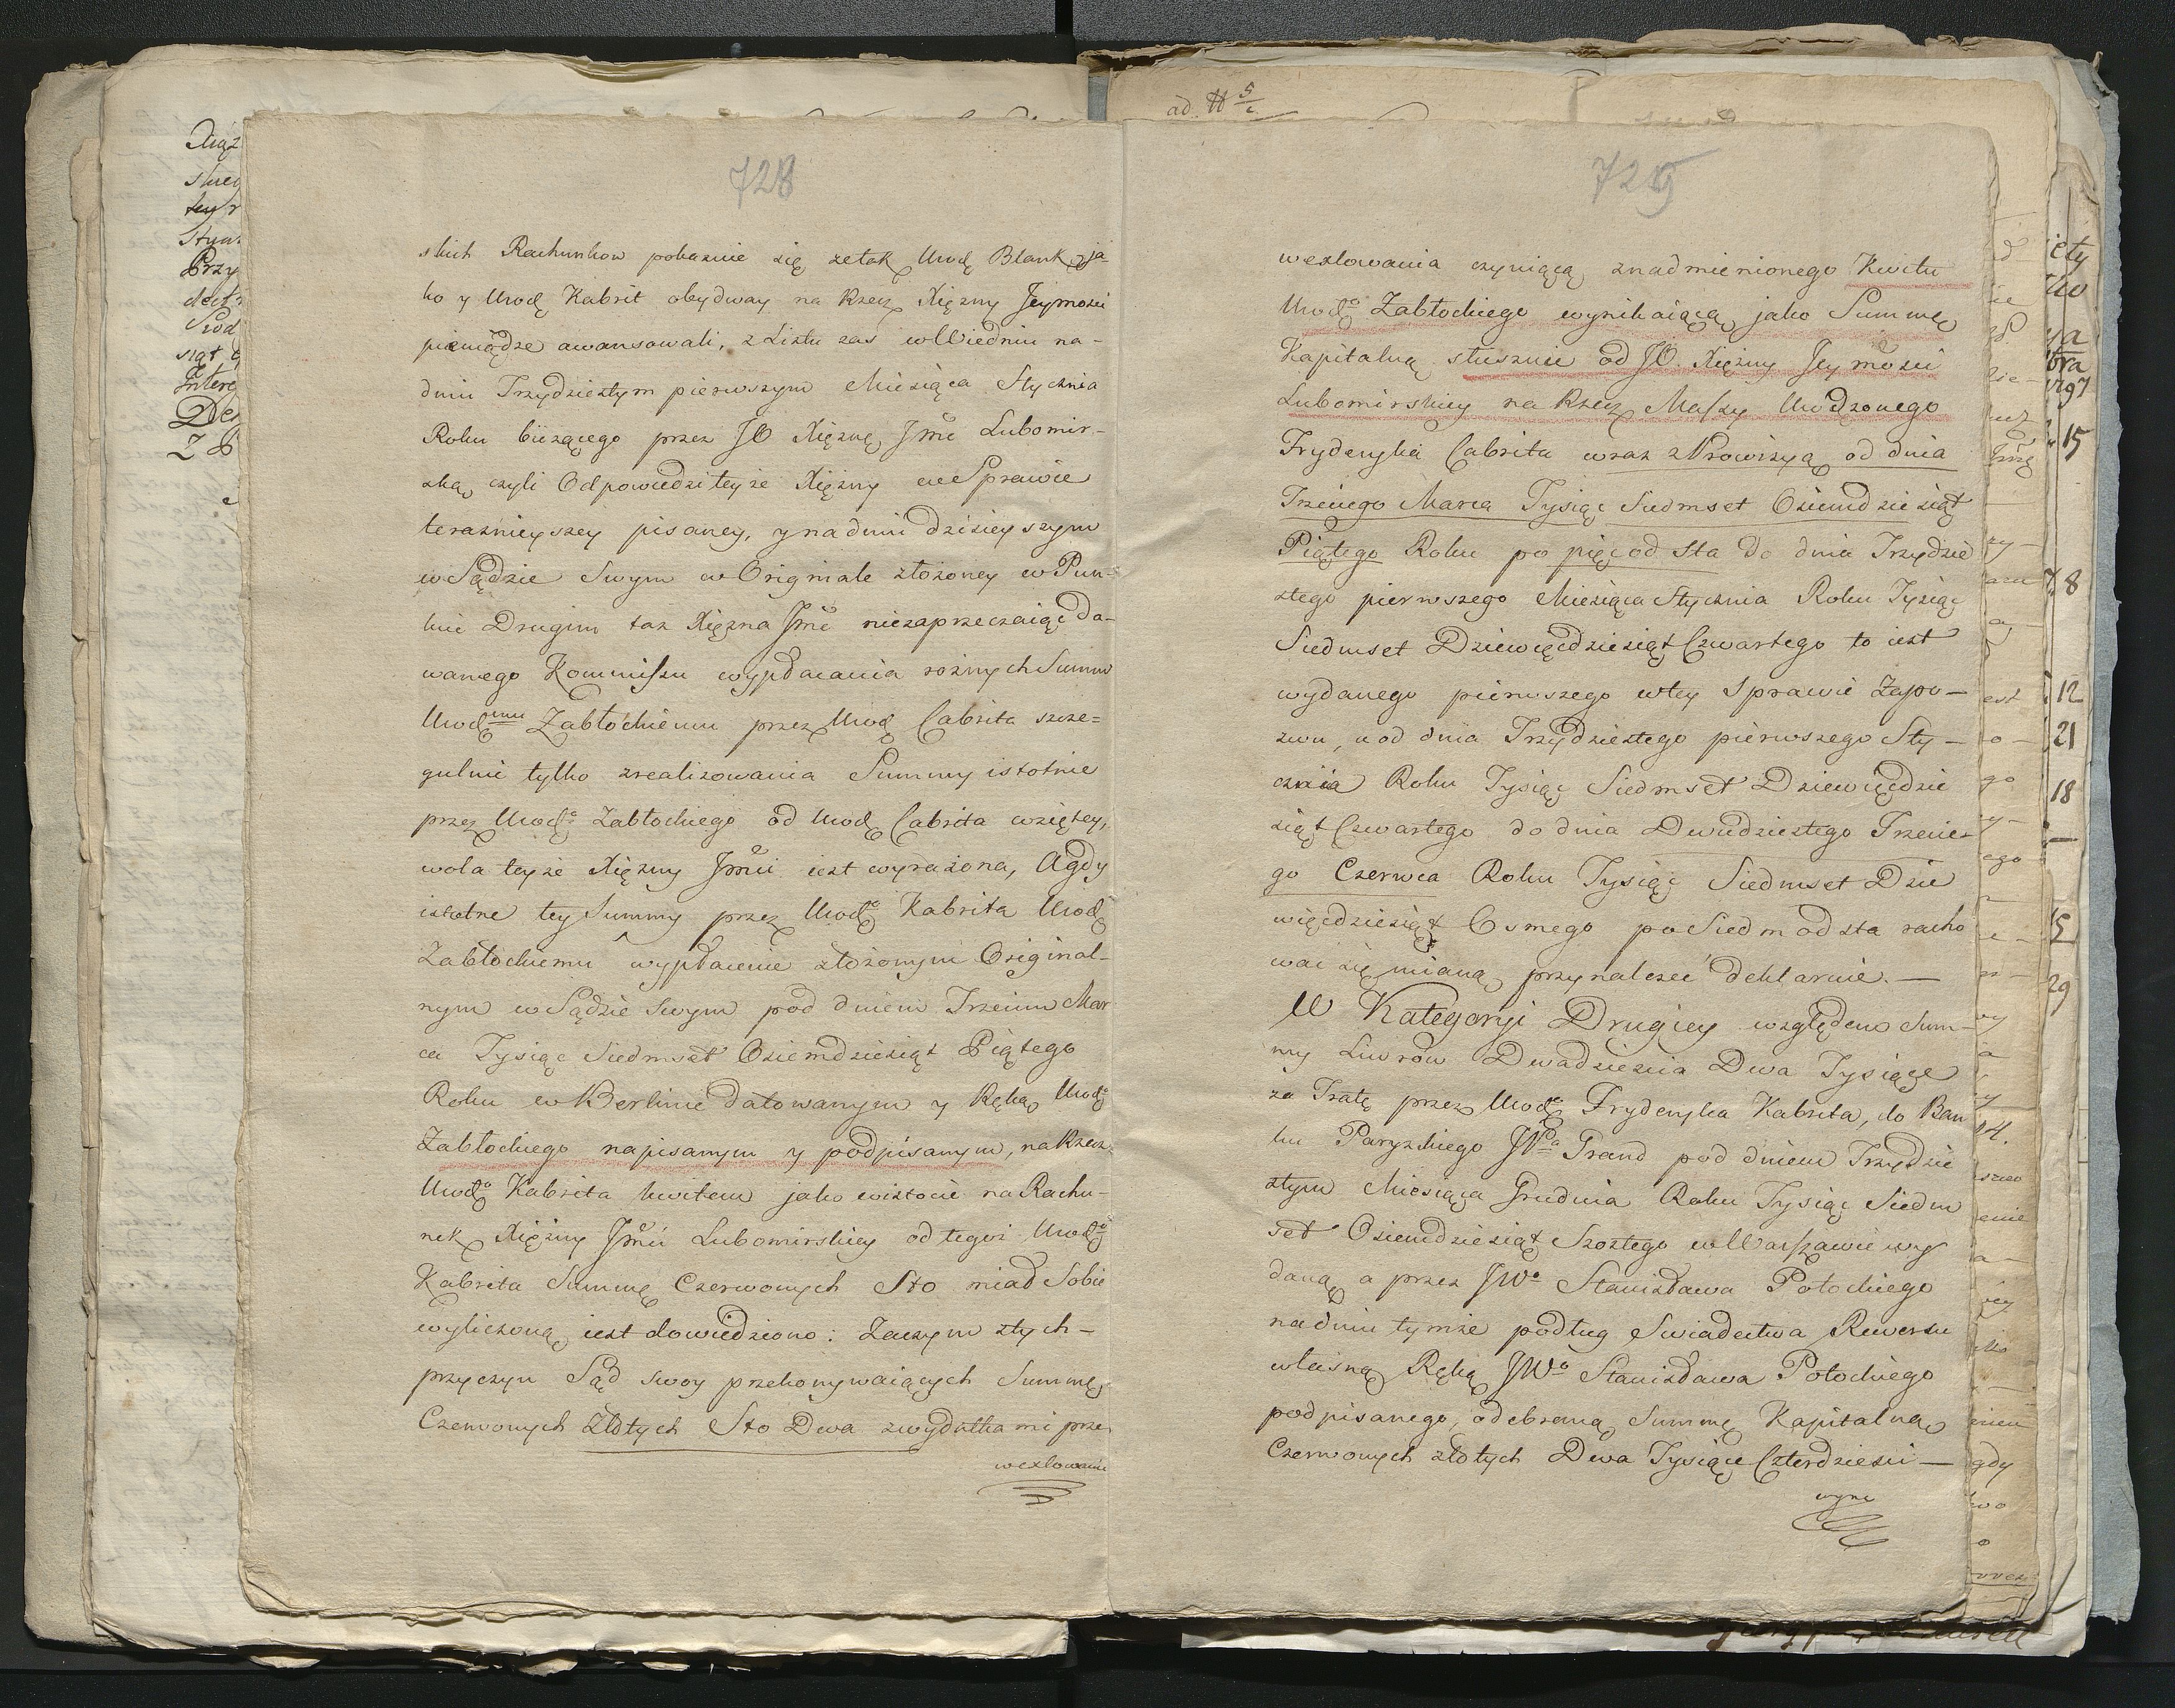 728
skich Rachunkow pokazuie się że tak Urodz Blank, ja-
ko y Urodz Kabrit obydway na Rzecz Xiężny Jeymości
pieniądze awansowali, z Listu zas w Wiedniu na-
dniu Trzydziestym pierwszym Miesiąca Stycznia
Roku bieżącego przez JO Xiężnę Jmć Lubomir-
ską czyli Odpowiedzi teyże Xiężny w Sprawie
terazniejszey pisaney, y na dniu dzisieyszym
w Sądzie Swym w Originale złożoney w Pun-
kcie Drugim taż Xiężna Jmć niezaprzeczaiąc da-
wanego Kommissu wypłacania rożnych Summ
Urodzmu Zabłockiemu przez Urodz Cabrita szcze=
gulnie tylko zrealizowania Summy istotnie
przez Urodzo Zabłockiego od Urodz Cabrita wziętey,
wola teyże Xiężny Jmci iest wyrażona, A gdy
istotne tey Summy przez Urodzo Kabrita Urodz
Zabłockiemu wypłacenie złożonym Original-
nym w Sądzie Swym pod dniem Trzecim Mar
ca Tysiąc Siedmset Osiemdziesiąt Piątego
Roku w Berlinie datowanym y Ręką Urodzo
Zabłockiego napisanym y podpisanym, na Rzecz
Urodzo Kabrita kwitem jako wistocie na Rachu-
nek Xiężny Jmci Lubomirskiey od tegoż Urodzo
Kabrita Summę Czerwonych Sto miał Sobie
wyliczoną iest dowiedziono: Zaczym z tych-
przyczyn Sąd Swoy przekonywaiących Summę
Czerwonych Złotych Sto Dwa z wydatkami prze
wexlowanie
ad N 5/c
729
wexlowania czyniącą z nadmienionego Kwitu
Urodzo Zabłockiego wynikaiącą jako Summę
Kapitalną słusznie od JO. Xiężny Jeymości
Lubomirskiey na Rzecz Massy Urodzonego
Fryderyka Cabrita wraz z Prowizyą od dnia
Trzeciego Marca Tysiąc Siedmset Osiemdziesiąt
Piątego Roku po pięć od Sta do dnia Trzydzie
stego pierwszego Miesiąca Stycznia Roku Tysiąc
Siedmset Dziewięćdziesiąt Czwartego to iest
wydanego pierwszego w tey Sprawie Zapo-
zwu, a od dnia Trzydziestego pierwszego Sty-
cznia Roku Tysiąc Siedmset Dziewięćdzie
siąt Czwartego do dnia Dwudziestego Trzecie-
go Czerwca Roku Tysiąc Siedmset Dzie
więćdziesiąt Osmego po Siedm od sta racho
wać się mianą przynależeć deklaruie. -
W Kategoryi Drugiey względem Sum-
my Liwrów Dwadzieścia Dwa Tysiące
za Tratę przez Urodzo Fryderyka Kabrita, do Ban
ku Paryzkiego JPa Grand pod dniem Trzydzie
stym Miesiąca Grudnia Roku Tysiąc Siedm
set Osiemdziesiąt Szostego w Warszawie wy
daną a przez JWo Stanisława Potockiego
na dniu tymże podług Swiadectwa Rewersu
własną Ręką JWo Stanisława Potockiego
podpisanego, odebraną Summę Kapitalną
Czerwonych złotych Dwa Tysiące Czterdzieści -
wyno
15
8
12
21
18
15
29